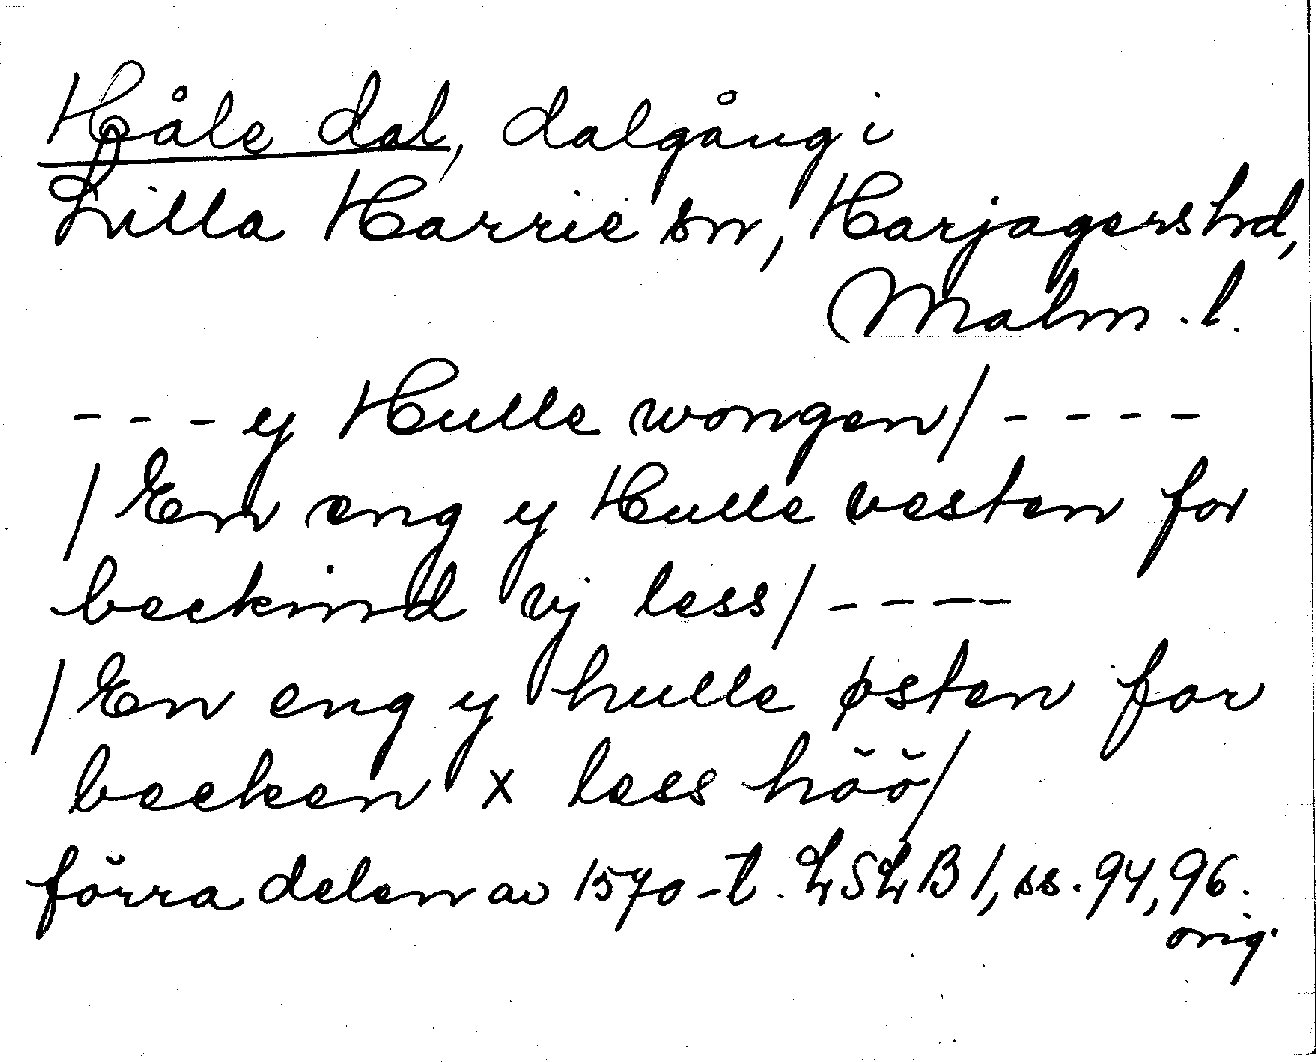 Håle dal, dalgång i
Lilla Harrie sn, Harjagers hd,
Malm. l.
- - - y Hulle wongen/ - - - -
/En eng y Hulle vesten for
beckind vj less/ - - - -
/En eng y hulle østen for
becken x less höö/
förra delen av 1570-t. LSLB 1, ss. 94, 96.
orig.